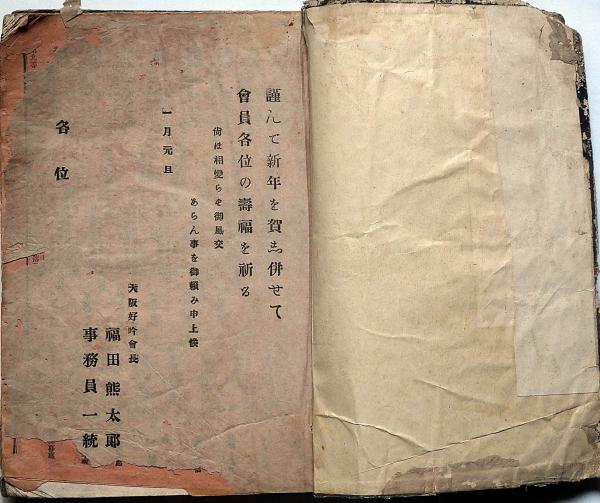 謹んで新年を賀志併せて
會員各位の壽福を祈る
尙ほ相變らを御風交
あらん事を御頼み申上候
一月元旦
大阪好吟會長
福田熊太郎
事務員一統
各位